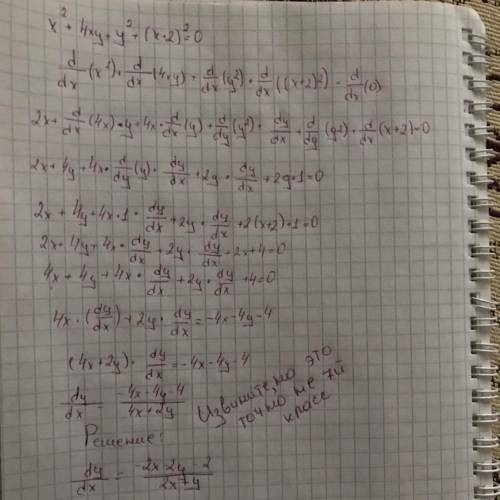 x² + 4xy + y² + (x+2)² = 0
d/dx (x²) + d/dx (4xy) + d/dx (y²) + d/dx ((x+2)²) = d/dx (0)
2x + d/dx (4x) · y + 4x · d/dx (y) + d/dy (y²) · dy/dx + d/dg (g²) · d/dx (x+2) = 0
2x + 4y + 4x · d/dy (y) · dy/dx + 2y · dy/dx + 2g · 1 = 0
2x + 4y + 4x · 1 · dy/dx + 2y · dy/dx + 2(x+2) · 1 = 0
2x + 4y + 4x · dy/dx + 2y · dy/dx + 2x + 4 = 0
4x + 4y + 4x · dy/dx + 2y · dy/dx + 4 = 0
4x · (dy/dx) + 2y · dy/dx = -4x - 4y - 4
(4x + 2y) · dy/dx = -4x - 4y - 4
dy/dx = (-4x - 4y - 4)/(4x + 2y)
Извините, но это
точно не 7й
класс
Решение:
dy/dx = (-2x - 2y - 2)/(2x + y)